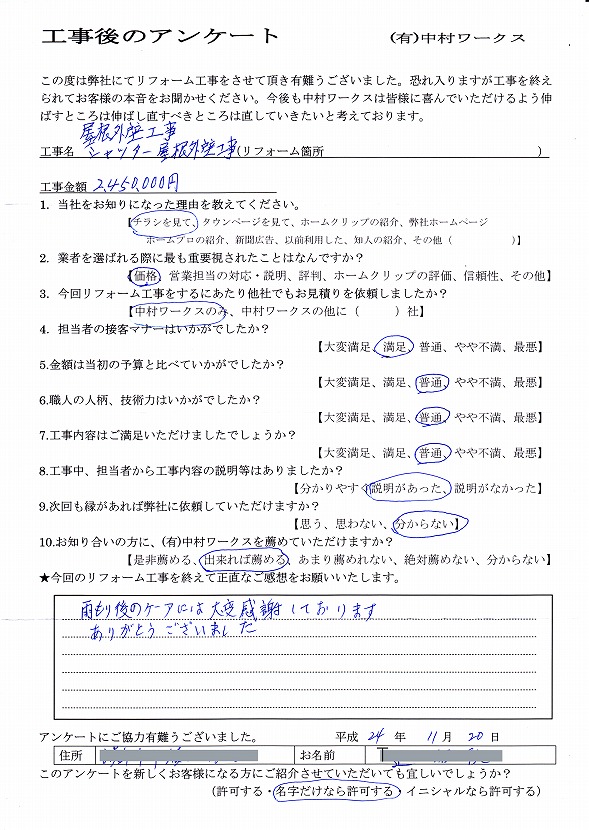 工事後のアンケート (有)中村ワークス
この度は弊社にてリフォーム工事をさせて頂き有難うございました。恐れ入りますが工事を終え
られてお客様の本音をお聞かせください。今後も中村ワークスは皆様に喜んでいただけるよう伸
ばすところは伸ばし直すべきところは直していきたいと考えております。
屋根外壁工事
工事名 シャッター屋根外壁工事(リフォーム箇所 )
工事金額 2,450,000円
1. 当社をお知りになった理由を教えてください。
【チラシを見て、タウンページを見て、ホームクリップの紹介、弊社ホームページ
ホームプロの紹介、新聞広告、以前利用した、知人の紹介、その他( )】
2. 業者を選ばれる際に最も重要視されたことはなんですか?
【価格、営業担当の対応・説明、評判、ホームクリップの評価、信頼性、その他】
3. 今回リフォーム工事をするにあたり他社でもお見積りを依頼しましたか?
【中村ワークスのみ、中村ワークスの他に( )社】
4. 担当者の接客マナーはいかがでしたか?
【大変満足、満足、普通、やや不満、最悪】
5.金額は当初の予算と比べていかがでしたか?
【大変満足、満足、普通、やや不満、最悪】
6.職人の人柄、技術力はいかがでしたか?
【大変満足、満足、普通、やや不満、最悪】
7.工事内容はご満足いただけましたでしょうか?
【大変満足、満足、普通、やや不満、最悪】
8.工事中、担当者から工事内容の説明等はありましたか?
【分かりやすく説明があった、説明がなかった】
9.次回も縁があれば弊社に依頼していただけますか?
【思う、思わない、分からない】
10.お知り合いの方に、(有)中村ワークスを薦めていただけますか?
【是非薦める、出来れば薦める、あまり薦めれない、絶対薦めない、分からない】
★今回のリフォーム工事を終えて正直なご感想をお願いいたします。
雨もり後のケアには大変感謝しております
ありがとうございました
アンケートにご協力有難うございました。 平成 24 年 11 月 20 日
住所 お名前
このアンケートを新しくお客様になる方にご紹介させていただいても宜しいでしょうか?
(許可する・名字だけなら許可する・イニシャルなら許可する)